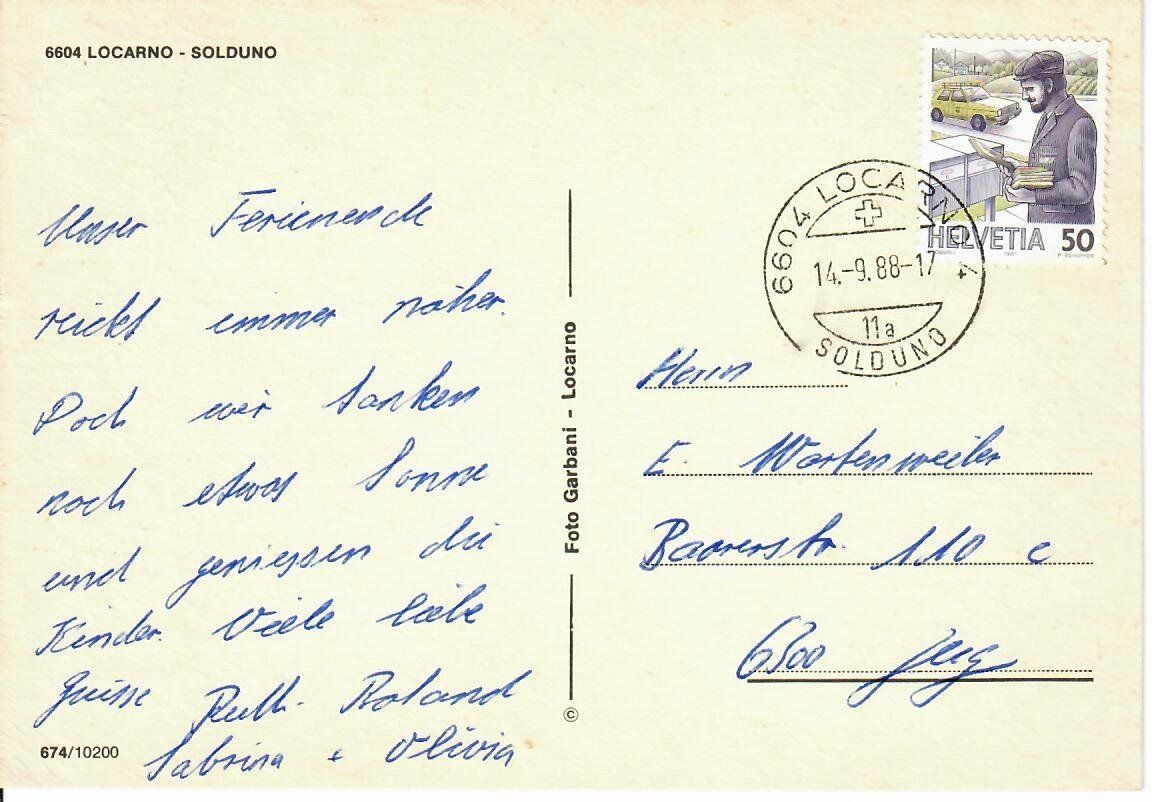 6604 LOCARNO - SOLDUNO
Unser Ferienende
rückt immer näher.
Doch wir tanken
noch etwas Sonne
und geniessen die
Kinder. Viele liebe
Grüsse Ruth. Roland
Sabrina + Olivia
674/10200
Foto Garbani - Locarno
©
HELVETIA 50
6604 LOCARNO 4
14.-9.88-17
11a
SOLDUNO
Herrn
E. Wartenweiler
Baarerstr. 110 c
6300 Zug